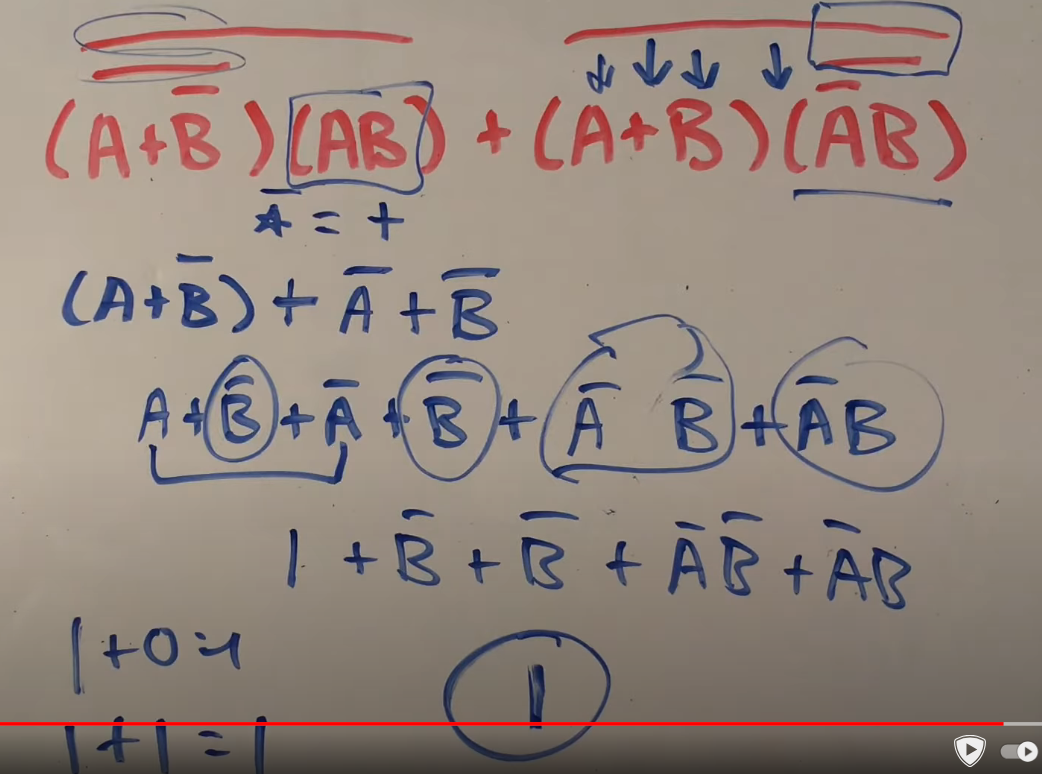 (A+B̅)(AB) + (A+B)(A̅B)
⁎̅ = +
(A+B̅) + A̅ + B̅
A + B̅ + A̅ + B̅ + A̅ B̅ + A̅B
1 + B̅ + B̅ + A̅B̅ + A̅B
1+0=1
1
1+1=1